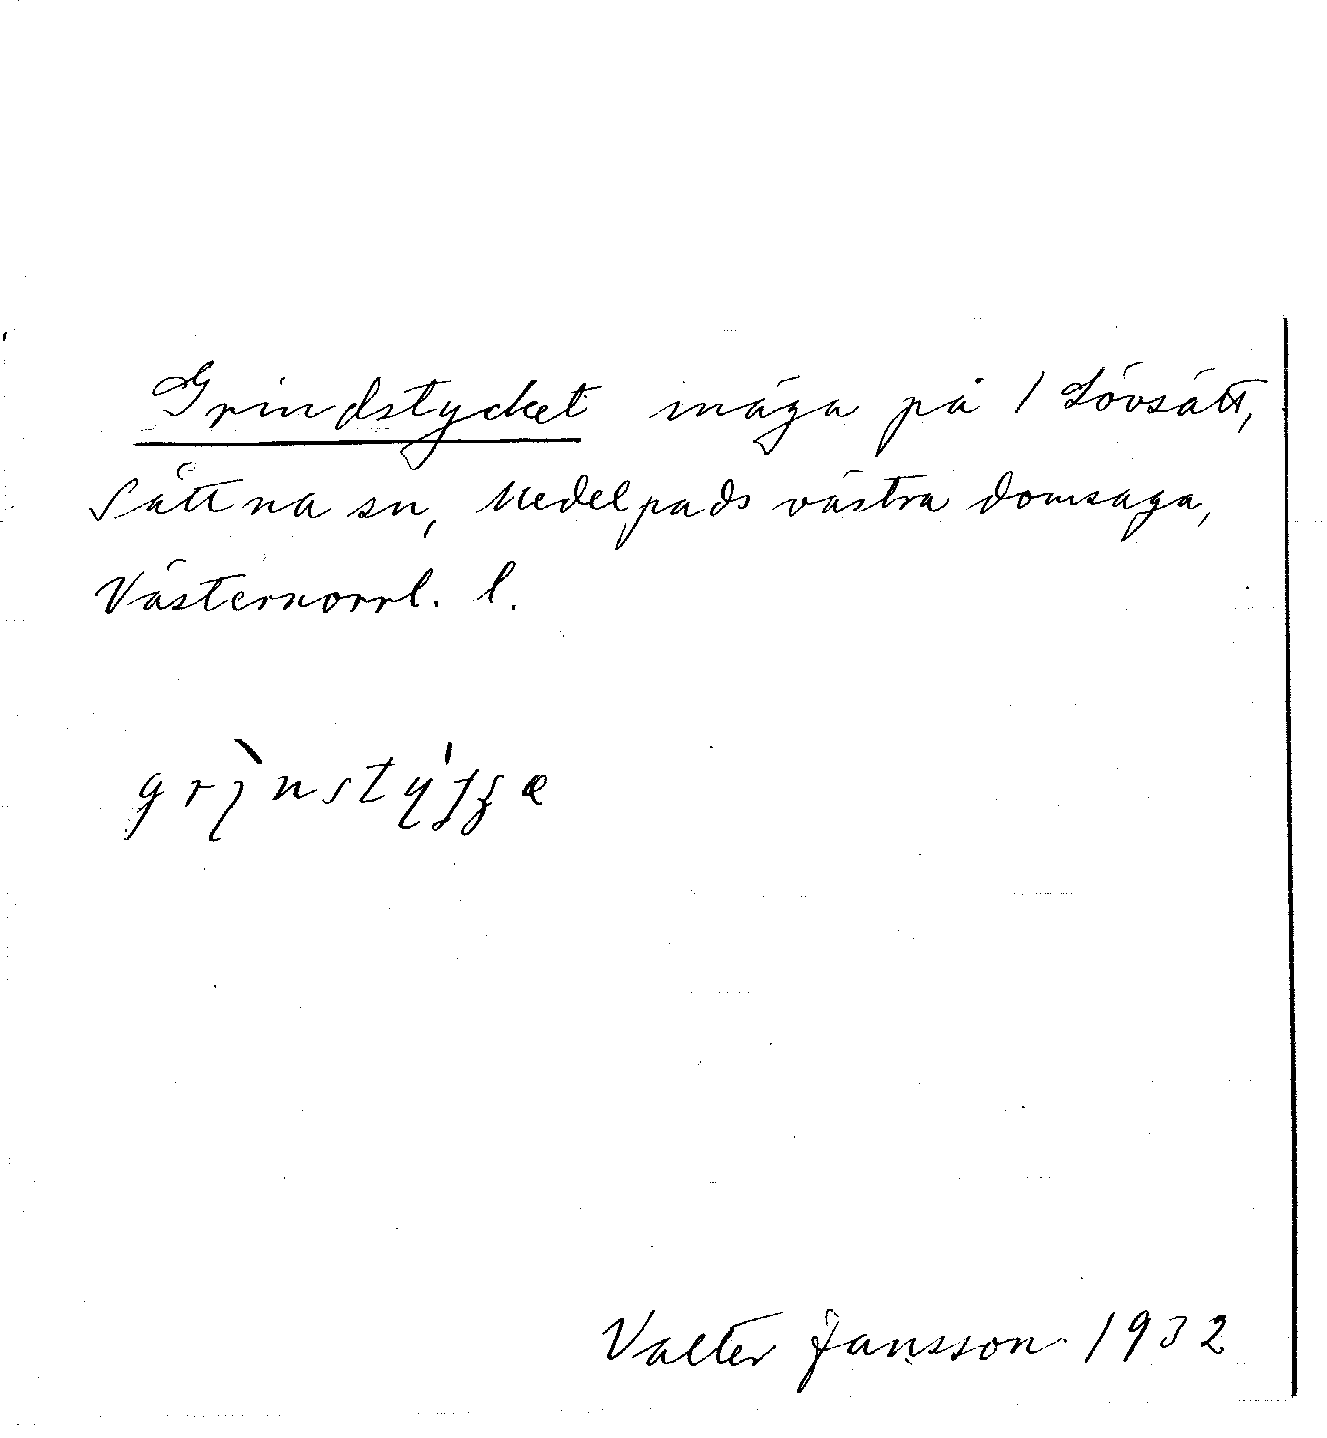 Grindstycket inäga på 1 Lövsätt,
Sättna sn, Medelpads västra domsaga,
Västernorrl. l.
Valter Jansson 1932